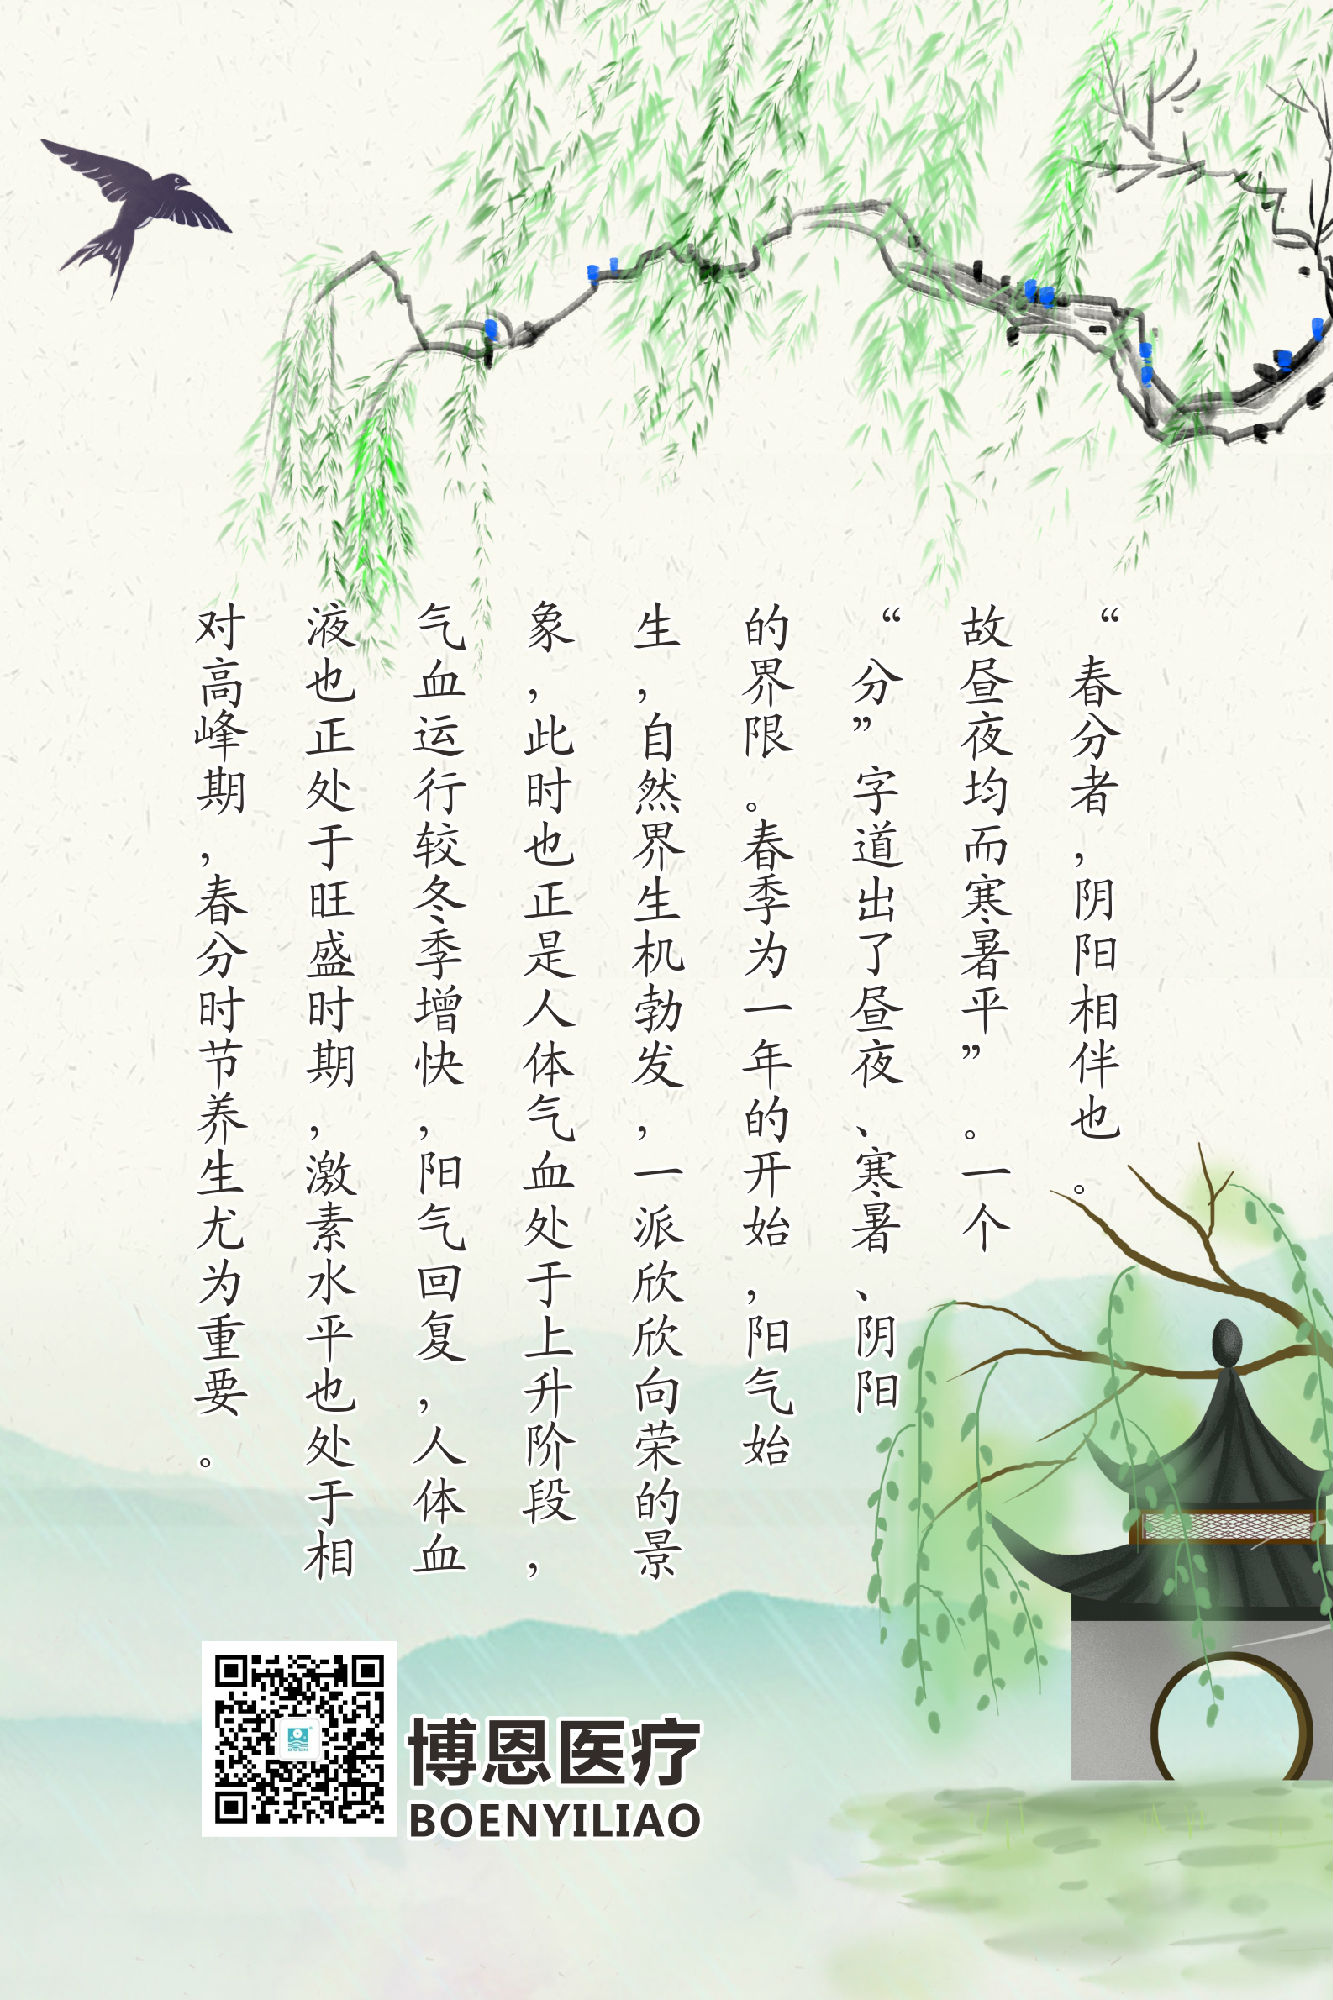 “春分者，阴阳相伴也。
故昼夜均而寒暑平”。一个
“分”字道出了昼夜、寒暑、阴阳
的界限。春季为一年的开始，阳气始
生，自然界生机勃发，一派欣欣向荣的景
象，此时也正是人体气血处于上升阶段，
气血运行较冬季增快，阳气回复，人体血
液也正处于旺盛时期，激素水平也处于相
对高峰期，春分时节养生尤为重要。
博恩医疗
BOENYILIAO